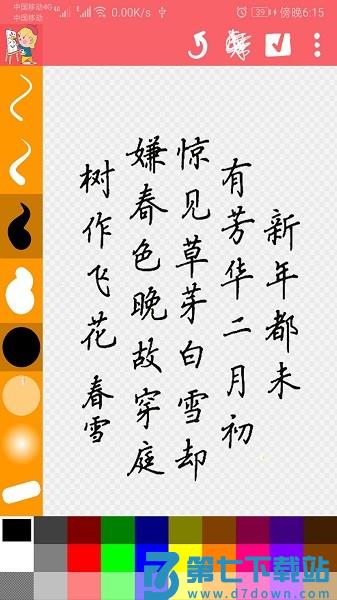 中国移动4G
中国移动
0.00K/s
39
傍晚6:15
新年都未
有芳华二月初
惊见草芽白雪却
嫌春色晚故穿庭
树作飞花 春雪
第七下载站
www.d7down.com